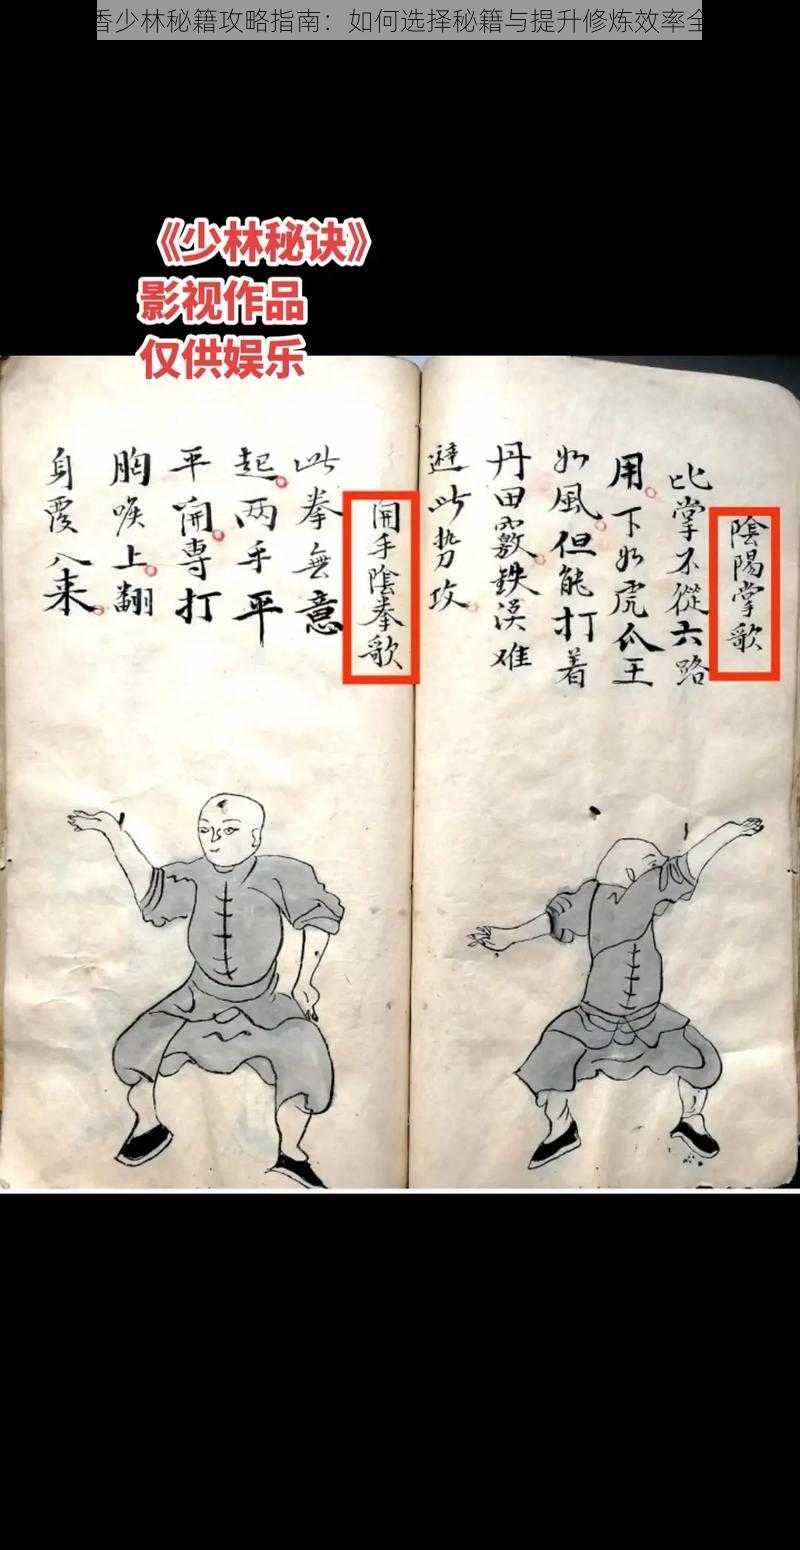 香少林秘籍攻略指南：如何选择秘籍与提升修炼效率全
《少林秘诀》
影视作品
仅供娱乐
陰陽掌歌
此掌不從六路
用下如虎爪王
如風但能打着
丹田竅鉄漢难
避此势攻
開手陰拳歌
此拳無意
起两手平
平開專打
胸喉上翻
身覆入来